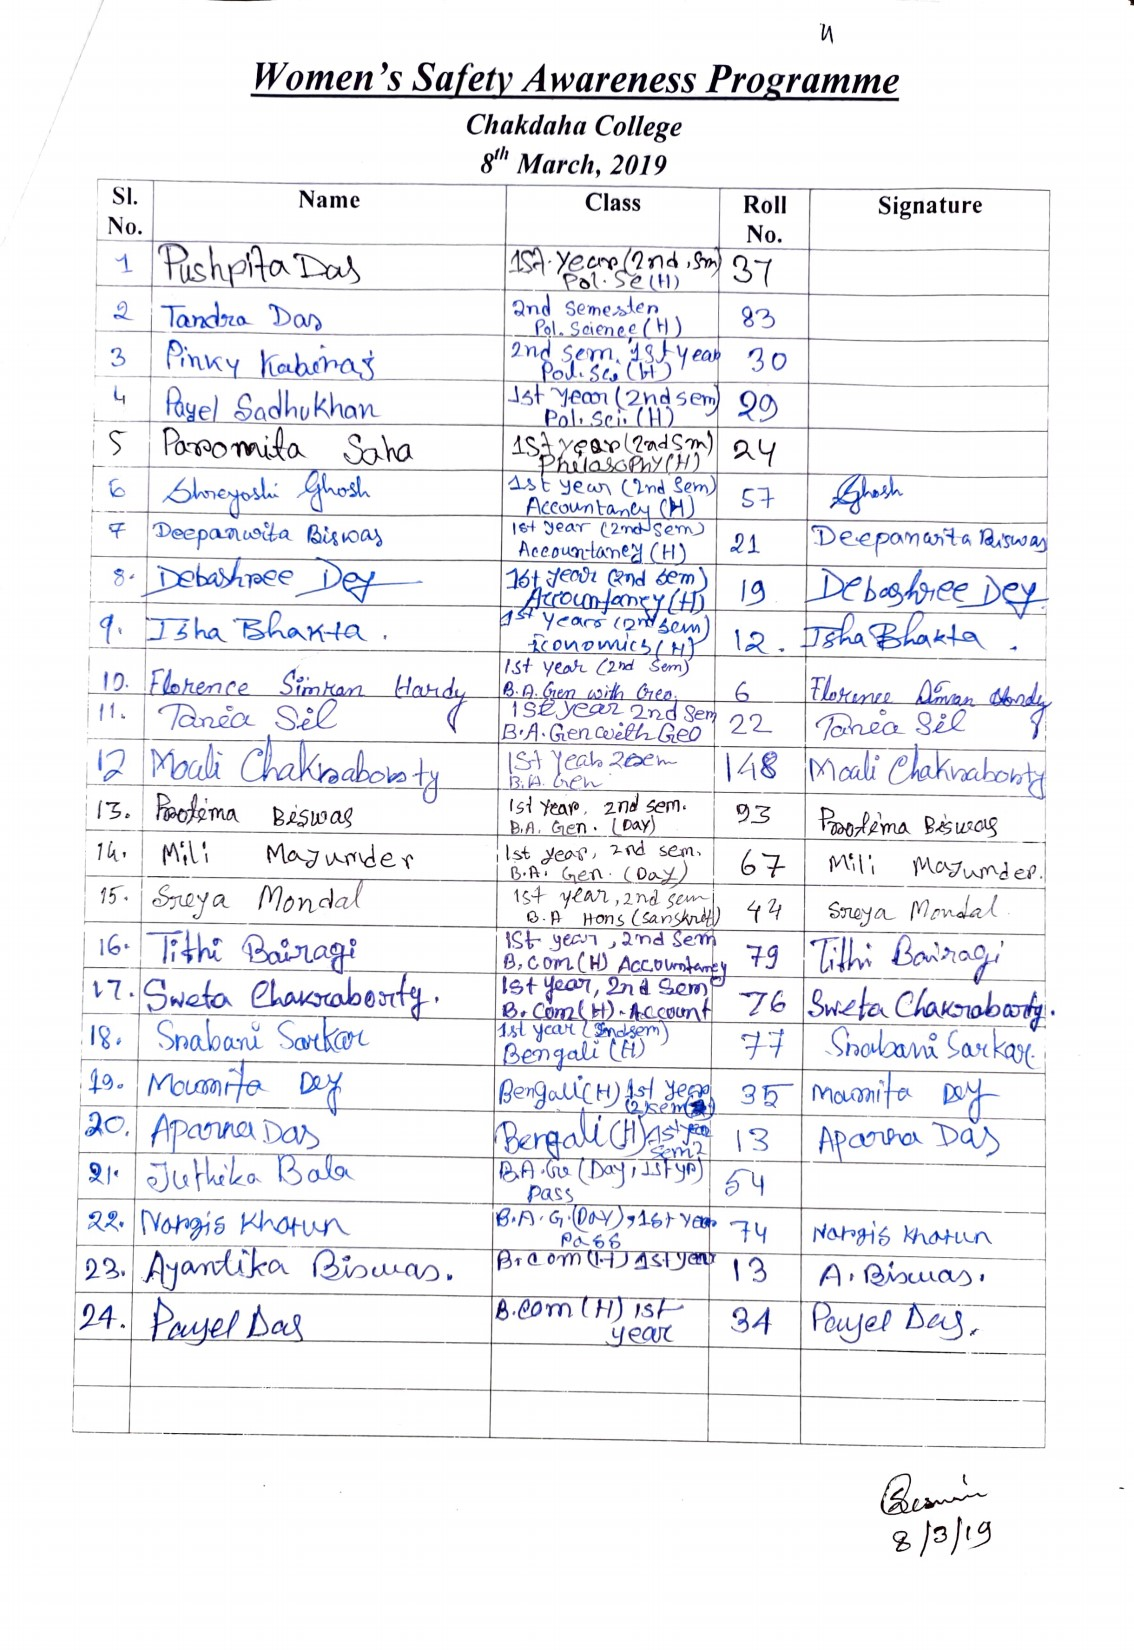 Women's Safety Awareness Programme
Chakdaha College
8th March, 2019
Sl. No. Name Class Roll No. Signature
1 Pushpita Das 1st. year (2nd, Sm) Pol. Sc (H) 37
2 Tandra Das 2nd Semester Pol. Science (H) 83
3 Pinky 2nd Sem. 1st year Pol. Sc. (H) 30
4 Payel Sadhukhan 1st Year (2nd sem) Pol. Sci. (H) 29
5 Paromita Saha 1st year (2nd Sm) Philasophy (H) 24
6 Shreyoshi Ghosh 1st year (2nd Sem) Accountancy (H) 57 Ghosh
7 Deepanwita Biswas 1st year (2nd Sem) Accountancy (H) 21 Deepanwita Biswas
8. Debashree Dey 1st year (2nd sem) Accountancy (H) 19 Debashree Dey.
9. Isha Bhakta. 1st years (2nd sem) Economics (H) 12. Isha Bhakta.
10. Florence Simran Hardy 1st year (2nd Sem) B.A. Gen with Geo. 6 Florence Simran Hardy
11. Tania Sil 1st year 2nd Sem B.A. Gen with Geo 22 Tania Sil
12 Moali Chakraborty 1st Year 2 sem B.A. Gen 148 Moali Chakraborty
13. Protima Biswas 1st year, 2nd sem. B.A. Gen. (Day) 93 Protima Biswas
14. Mili Majumder 1st year, 2nd sem. B.A. Gen. (Day) 67 Mili Majumder.
15. Sreya Mondal 1st year, 2nd sem B.A Hons (Sanskrit) 44 Sreya Mondal.
16. Tithi Bairagi 1st year, 2nd Sem B.Com (H) Accountancy 79 Tithi Bairagi
17. Sweta Chakraborty. 1st year, 2nd Sem B.Com (H). Account 76 Sweta Chakraborty.
18. Srabani Sarkar 1st year (2nd sem) Bengali (H) 77 Srabani Sarkar.
19. Moumita Dey Bengali (H) 1st year (2) sem 35 Moumita Dey
20. Aparna Das Bengali (H) 1st year sem 2 13 Aparna Das
21. Juthika Bala B.A. Ge (Day, 1st yr) pass 54
22. Nargis Khatun B.A. G. (Day), 1st year Pass 74 Nargis Khatun
23. Ayantika Biswas. B.com (H) 1st year 13 A. Biswas.
24. Payel Das B.com (H) 1st year 34 Payel Das.
8/3/19